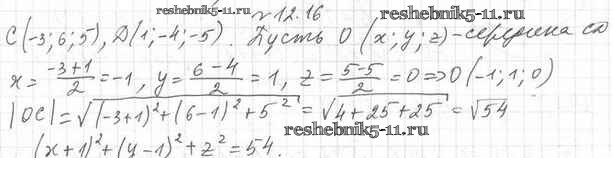 reshebnik5-11.ru
№ 12.16
C(-3; 6; 5), D(1; -4; -5). Пусть O (x; y; z) - середина CD
x = \frac{-3+1}{2} = -1, y = \frac{6-4}{2} = 1, z = \frac{5-5}{2} = 0 => O(-1; 1; 0)
reshebnik5-11.ru
|OC| = \sqrt{(-3+1)^2 + (6-1)^2 + 5^2} = \sqrt{4+25+25} = \sqrt{54}
reshebnik5-11.ru
(x+1)^2 + (y-1)^2 + z^2 = 54.